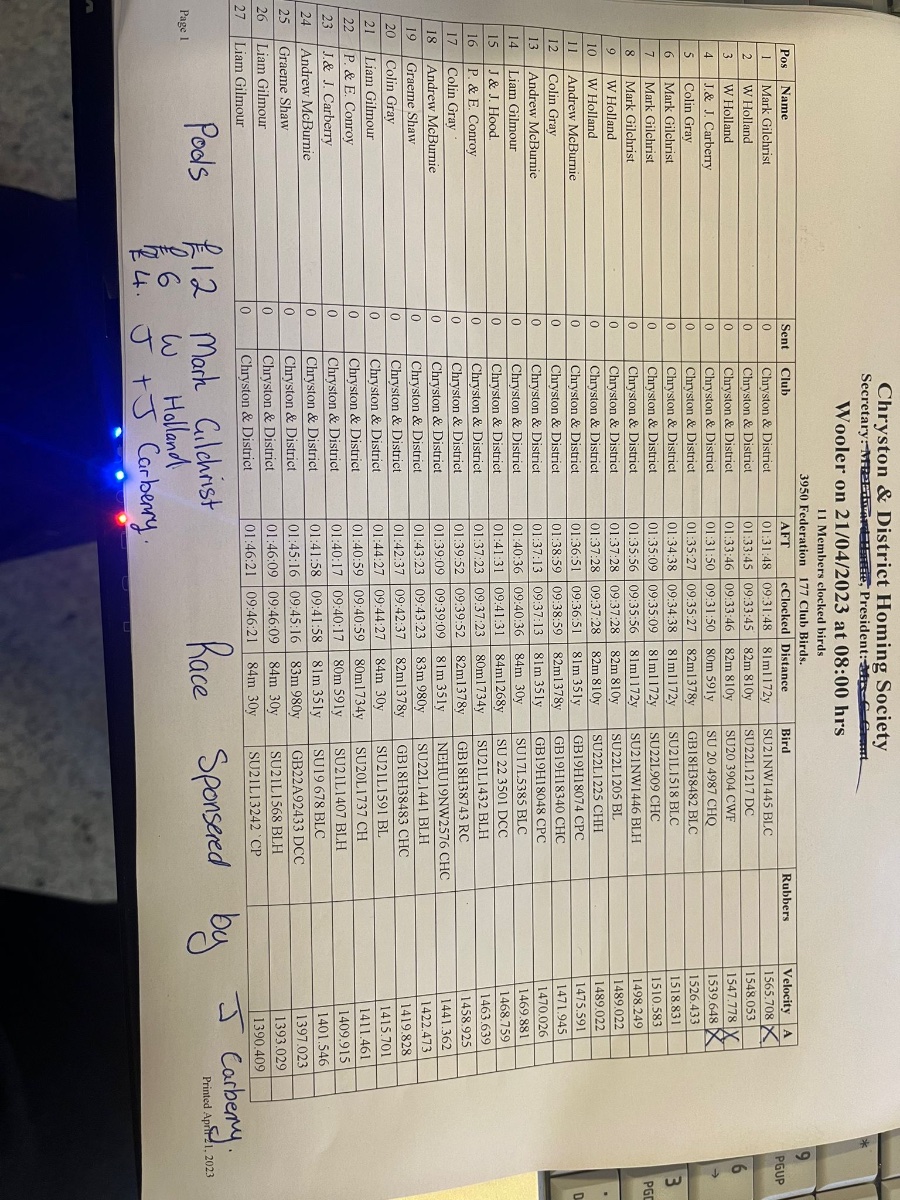 Chryston & District Homing Society
Secretary: , President:
Wooler on 21/04/2023 at 08:00 hrs
11 Members clocked birds
3950 Federation 177 Club Birds.
Pos Name Sent Club AFT cClocked Distance Bird Rubbers Velocity A
1 Mark Gilchrist 0 Chryston & District 01:31:48 09:31:48 81m1172y SU21NW1445 BLC 1565.708 X
2 W Holland 0 Chryston & District 01:33:45 09:33:45 82m 810y SU22L1217 DC 1548.053
3 W Holland 0 Chryston & District 01:33:46 09:33:46 82m 810y SU20 3904 CWF 1547.778 X
4 J.& J. Carberry 0 Chryston & District 01:31:50 09:31:50 80m 591y SU 20 4987 CHQ 1539.648 X
5 Colin Gray 0 Chryston & District 01:35:27 09:35:27 82m1378y GB18H38482 BLC 1526.433
6 Mark Gilchrist 0 Chryston & District 01:34:38 09:34:38 81m1172y SU21L1518 BLC 1518.831
7 Mark Gilchrist 0 Chryston & District 01:35:09 09:35:09 81m1172y SU22L909 CHC 1510.583
8 Mark Gilchrist 0 Chryston & District 01:35:56 09:35:56 81m1172y SU21NW1446 BLH 1498.249
9 W Holland 0 Chryston & District 01:37:28 09:37:28 82m 810y SU22L1205 BL 1489.022
10 W Holland 0 Chryston & District 01:37:28 09:37:28 82m 810y SU22L1225 CHH 1489.022
11 Andrew McBurnie 0 Chryston & District 01:36:51 09:36:51 81m 351y GB19H18074 CPC 1475.591
12 Colin Gray 0 Chryston & District 01:38:59 09:38:59 82m1378y GB19H18340 CHC 1471.945
13 Andrew McBurnie 0 Chryston & District 01:37:13 09:37:13 81m 351y GB19H18048 CPC 1470.026
14 Liam Gilmour 0 Chryston & District 01:40:36 09:40:36 84m 30y SU17L5385 BLC 1469.881
15 J & J. Hood. 0 Chryston & District 01:41:31 09:41:31 84m1268y SU 22 3501 DCC 1468.759
16 P. & E. Conroy 0 Chryston & District 01:37:23 09:37:23 80m1734y SU21L1432 BLH 1463.639
17 Colin Gray 0 Chryston & District 01:39:52 09:39:52 82m1378y GB18H38743 RC 1458.925
18 Andrew McBurnie 0 Chryston & District 01:39:09 09:39:09 81m 351y NEHU19NW2576 CHC 1441.362
19 Graeme Shaw 0 Chryston & District 01:43:23 09:43:23 83m 980y SU22L1441 BLH 1422.473
20 Colin Gray 0 Chryston & District 01:42:37 09:42:37 82m1378y GB18H38483 CHC 1419.828
21 Liam Gilmour 0 Chryston & District 01:44:27 09:44:27 84m 30y SU21L1591 BL 1415.701
22 P. & E. Conroy 0 Chryston & District 01:40:59 09:40:59 80m1734y SU20L1737 CH 1411.461
23 J.& J. Carberry 0 Chryston & District 01:40:17 09:40:17 80m 591y SU21L1407 BLH 1409.915
24 Andrew McBurnie 0 Chryston & District 01:41:58 09:41:58 81m 351y SU19 678 BLC 1401.546
25 Graeme Shaw 0 Chryston & District 01:45:16 09:45:16 83m 980y GB22A92433 DCC 1397.023
26 Liam Gilmour 0 Chryston & District 01:46:09 09:46:09 84m 30y SU21L1568 BLH 1393.029
27 Liam Gilmour 0 Chryston & District 01:46:21 09:46:21 84m 30y SU21L13242 CP 1390.409
Pools £12 Mark Gilchrist
£6 W Holland
£4. J + J Carberry.
Race Sponsered by J Carberry.
Page 1
Printed April 21, 2023
*
9
PGUP
6
→
3
PGD
.
D